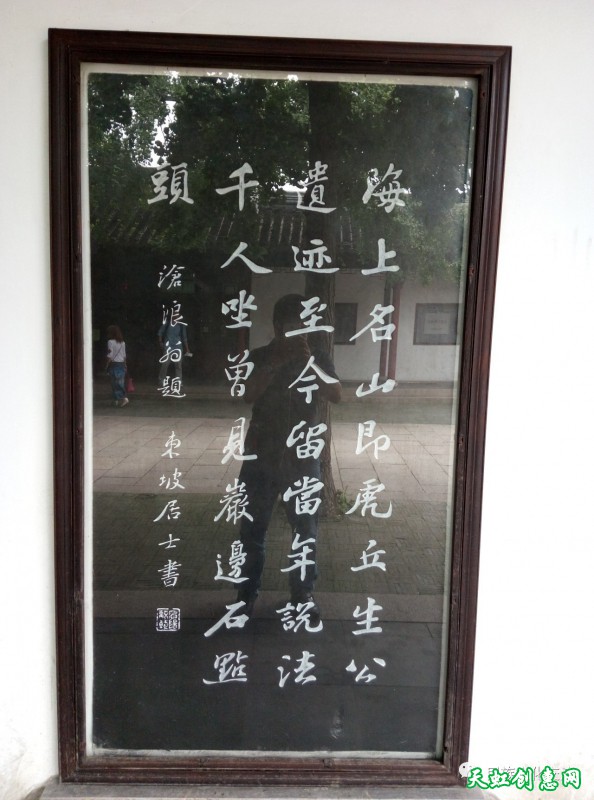 海上名山即虎丘生公
遺迹至今留當年説法
千人坐曾見巖邊石點
頭
滄浪翁題 東坡居士書
天虹创惠网